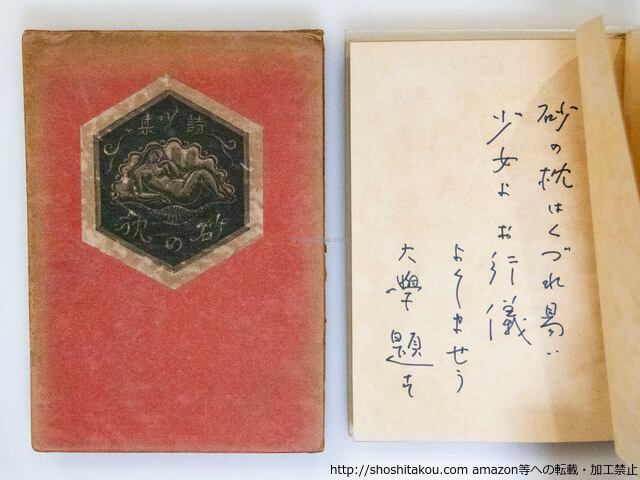 詩小集
砂の枕
砂の枕はくづれ易い
少女よお行儀
よくしませう
大學 題す
http://shoshitakou.com amazon等への転載・加工禁止